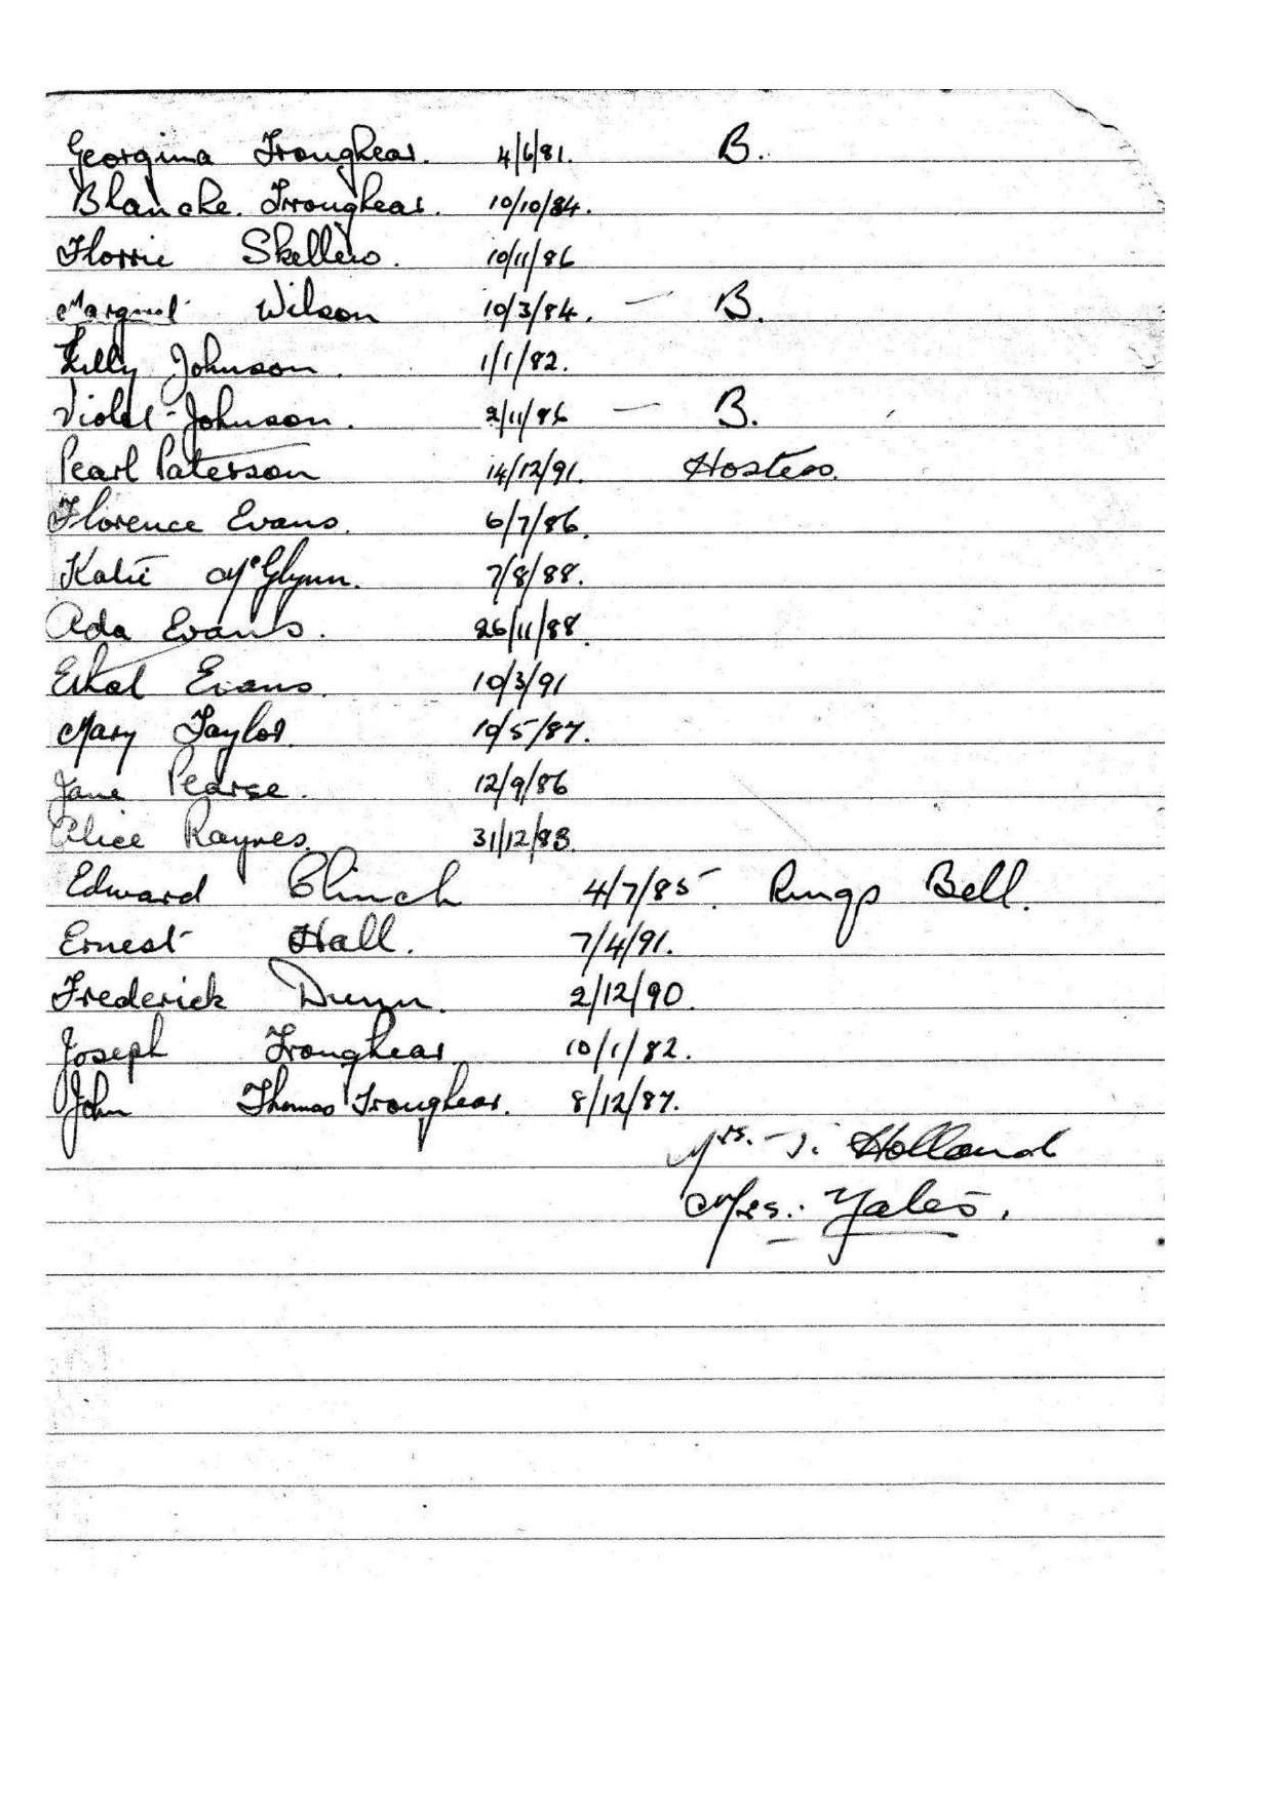 Georgina Troughear. 4/6/81. B.
Blanche. Troughear. 10/10/84.
Florrie Skellern. 10/11/86
Margaret Wilson 10/3/84. — B.
Lilly Johnson. 1/1/82.
Violet Johnson. 2/11/86 — B.
Pearl Paterson 14/12/91. Hostess.
Florence Evans. 6/7/86.
Katie McGlynn. 7/8/88.
Ada Evans. 26/11/88.
Ethel Evans. 10/3/91
Mary Taylor. 10/5/87.
Jane Pearse. 12/9/86
Alice Raynes. 31/12/83.
Edward Clinch 4/7/85. Rings Bell.
Ernest Hall. 7/4/91.
Frederick Dunn. 2/12/90.
Joseph Troughear 10/1/82.
John Thomas Troughear. 8/12/87.
Mrs. J. Holland
Mrs. Yates.